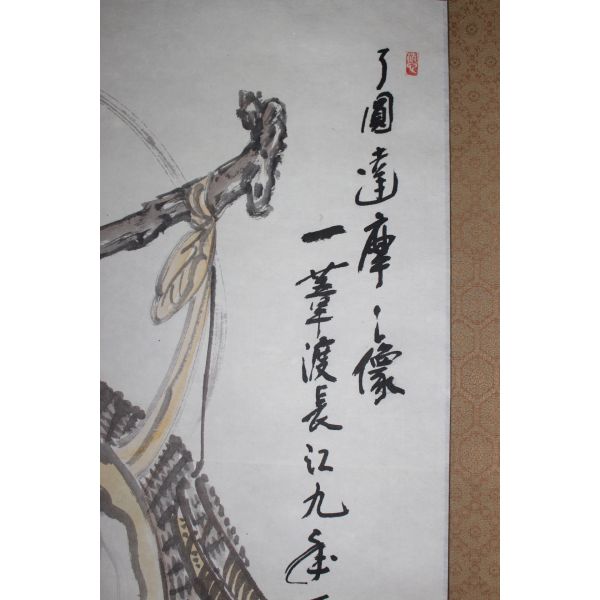 了圓達摩之像
一葦渡長江九年